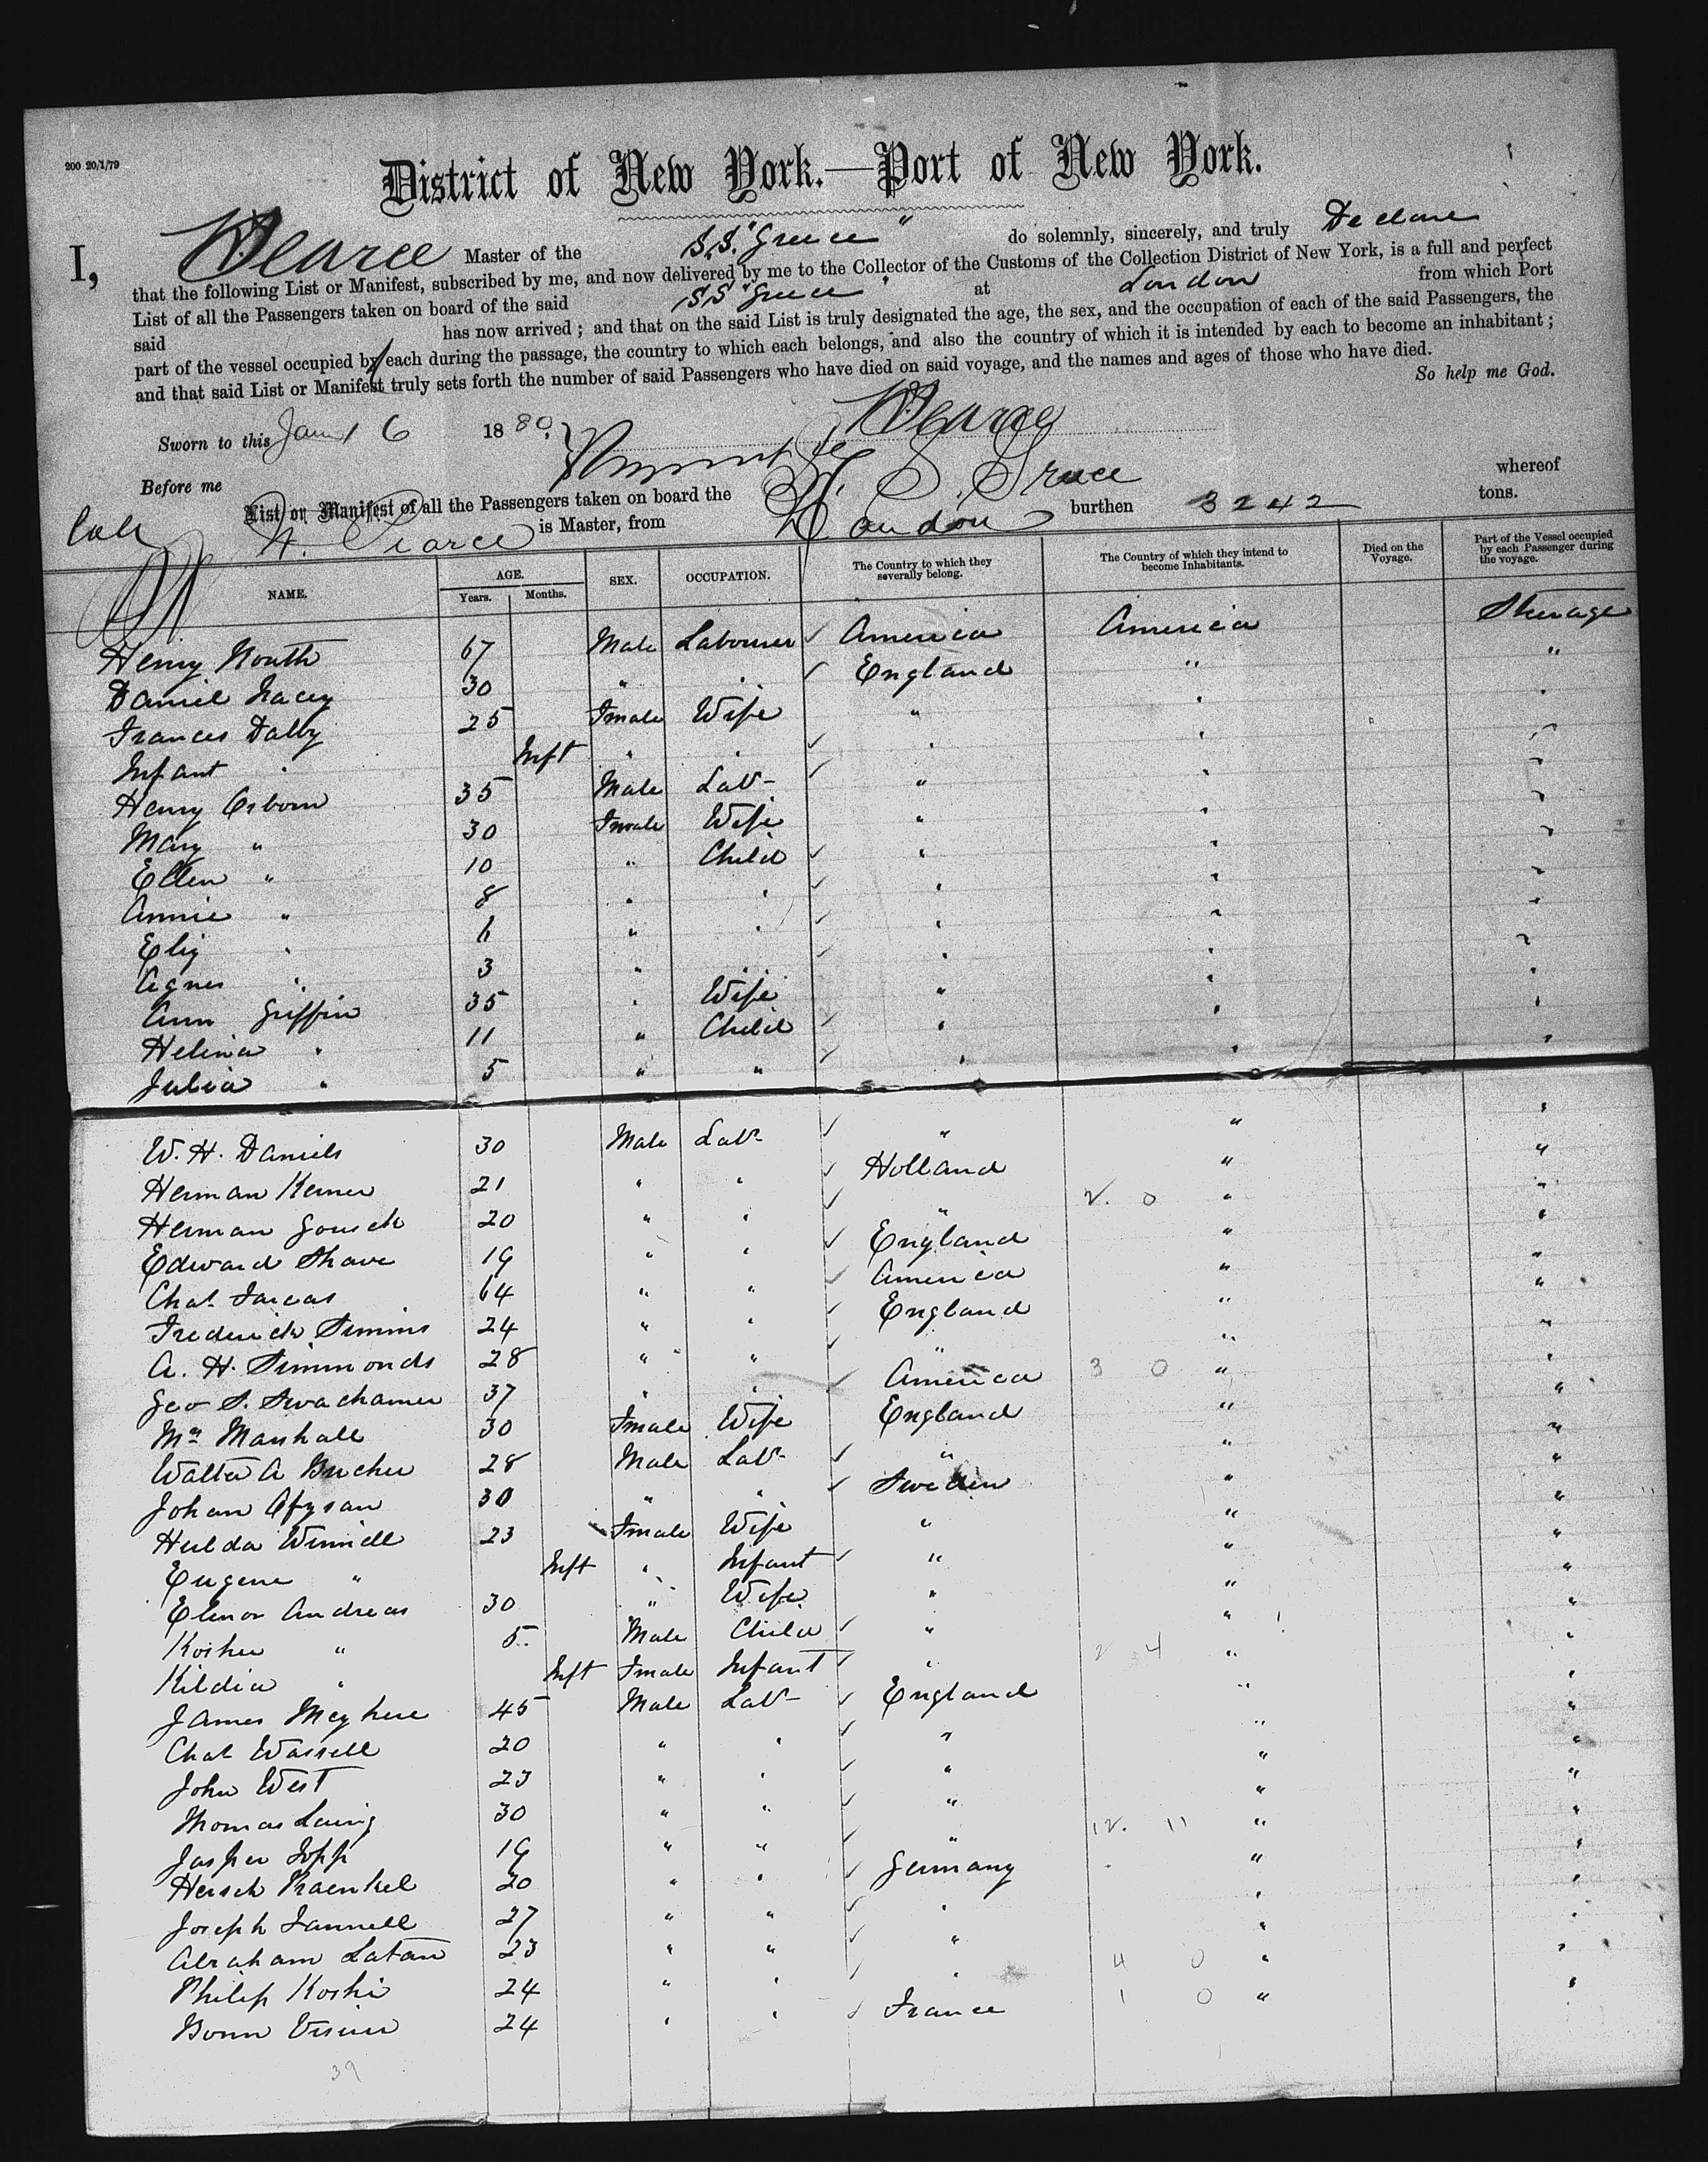 200 20/1/79
District of New York.—Port of New York.
I, Pearce Master of the S.S. "Greece" do solemnly, sincerely, and truly Declare
that the following List or Manifest, subscribed by me, and now delivered by me to the Collector of the Customs of the Collection District of New York, is a full and perfect
List of all the Passengers taken on board of the said S.S "Greece" at London from which Port
said has now arrived; and that on the said List is truly designated the age, the sex, and the occupation of each of the said Passengers, the
part of the vessel occupied by each during the passage, the country to which each belongs, and also the country of which it is intended by each to become an inhabitant;
and that said List or Manifest truly sets forth the number of said Passengers who have died on said voyage, and the names and ages of those who have died.
So help me God.
Sworn to this Jany 6 1880. Pearce
Before me
List or Manifest of all the Passengers taken on board the S. S. Greece whereof
W. Pearce is Master, from London burthen 3242 tons.
NAME. AGE. Years. Months. SEX. OCCUPATION. The Country to which they severally belong. The Country of which they intend to become Inhabitants. Died on the Voyage. Part of the Vessel occupied by each Passenger during the voyage.
Henry 67 Male Labourer America America Steerage
Daniel Lacey 30 " " England " "
Frances Dalby 25 Fmale Wife " " "
Infant " Inft " " " " "
Henry Osborn 35 Male Labr " " "
Mary " 30 Fmale Wife " " "
Ellen " 10 " Child " " "
Annie " 8 " " " " "
Eliz " 6 " " " " "
Agnes " 3 " " " " "
Ann Griffin 35 " Wife " " "
Helina " 11 " Child " " "
Julia " 5 " " " " "
W. H. Daniels 30 Male Labr " " "
Herman Kerner 21 " " Holland " "
Herman 20 " " " 2. 0 " "
Edward Shave 19 " " England " "
Chas 64 " " America " "
Frederick Simms 24 " " England " "
A. H. Simmonds 28 " " " " "
Geo S. Swachamer 37 " " America 3 0 " "
Mrs Marshall 30 Fmale Wife England " "
Walter A Bucher 28 Male Labr " " "
Johan 30 " " Sweden " "
Hulda Winnell 23 Fmale Wife " " "
Eugene " Inft " Infant " " "
Elenor Andreas 30 " Wife " " "
" 5 Male Child " " "
Kildia " Inft Fmale Infant " 2 4 " "
James 45 Male Labr England " "
Chas Wassell 20 " " " " "
John West 23 " " " " "
Thomas Laing 30 " " " " "
Jasper Topp 19 " " " 12. 11 " "
Hersch Fraenkel 20 " " Germany " "
Joseph Jannell 27 " " " " "
Abraham Latan 23 " " " " "
Philip Koski 24 " " " 4 0 " "
24 " " France 1 0 " "
39